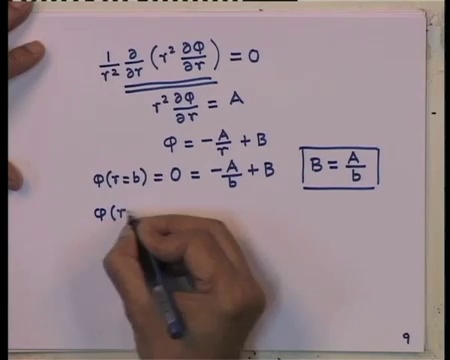 1/r² ∂/∂r (r² ∂φ/∂r) = 0
r² ∂φ/∂r = A
φ = -A/r + B
φ(r=b) = 0 = -A/b + B    B = A/b
φ(r
9